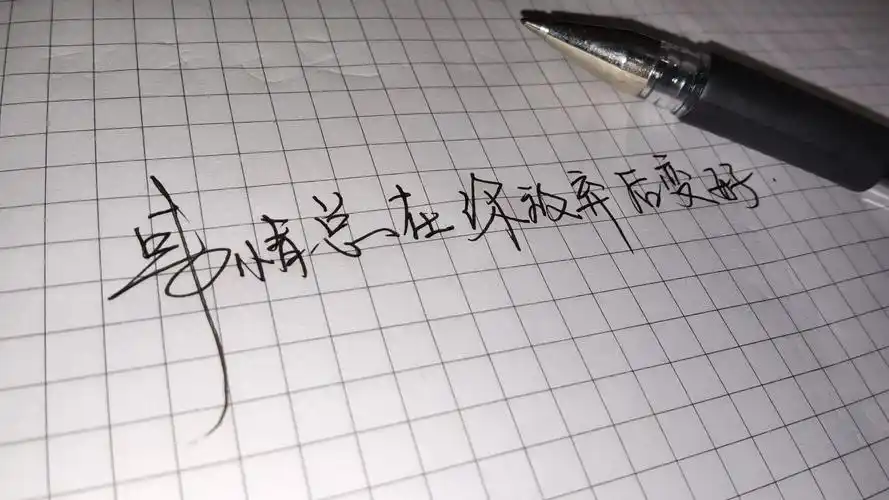 事情总在你放弃后变好.